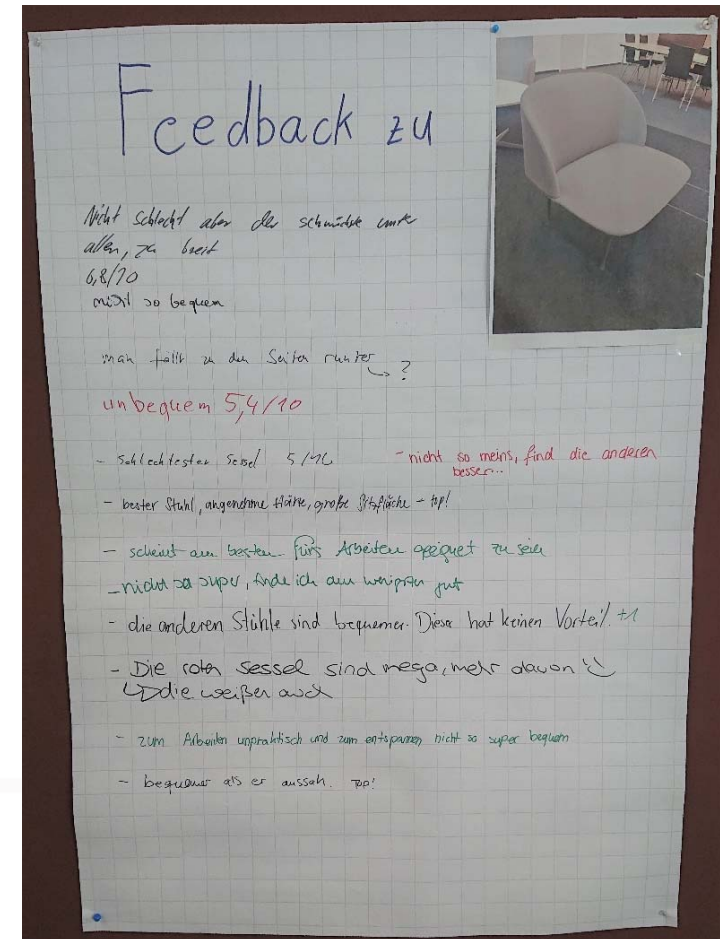 Feedback zu
Nicht schlecht aber der schwächste unter
allen, zu breit
6,8/10
nicht so bequem
man fällt zu den Seiten runter
?
unbequem 5,4/10
- Schlechtester Sessel 5/10
- nicht so meins, find die anderen
besser...
- bester Stuhl, angenehme Härte, große Sitzfläche - top!
- scheint am besten fürs Arbeiten geeignet zu sein
- nicht so super, finde ich am wenigsten gut
- die anderen Stühle sind bequemer. Dieser hat keinen Vorteil. +1
- Die roten Sessel sind mega, mehr davon
die weißen auch
- zum Arbeiten unpraktisch und zum entspannen nicht so super bequem
- bequemer als er aussah. top!